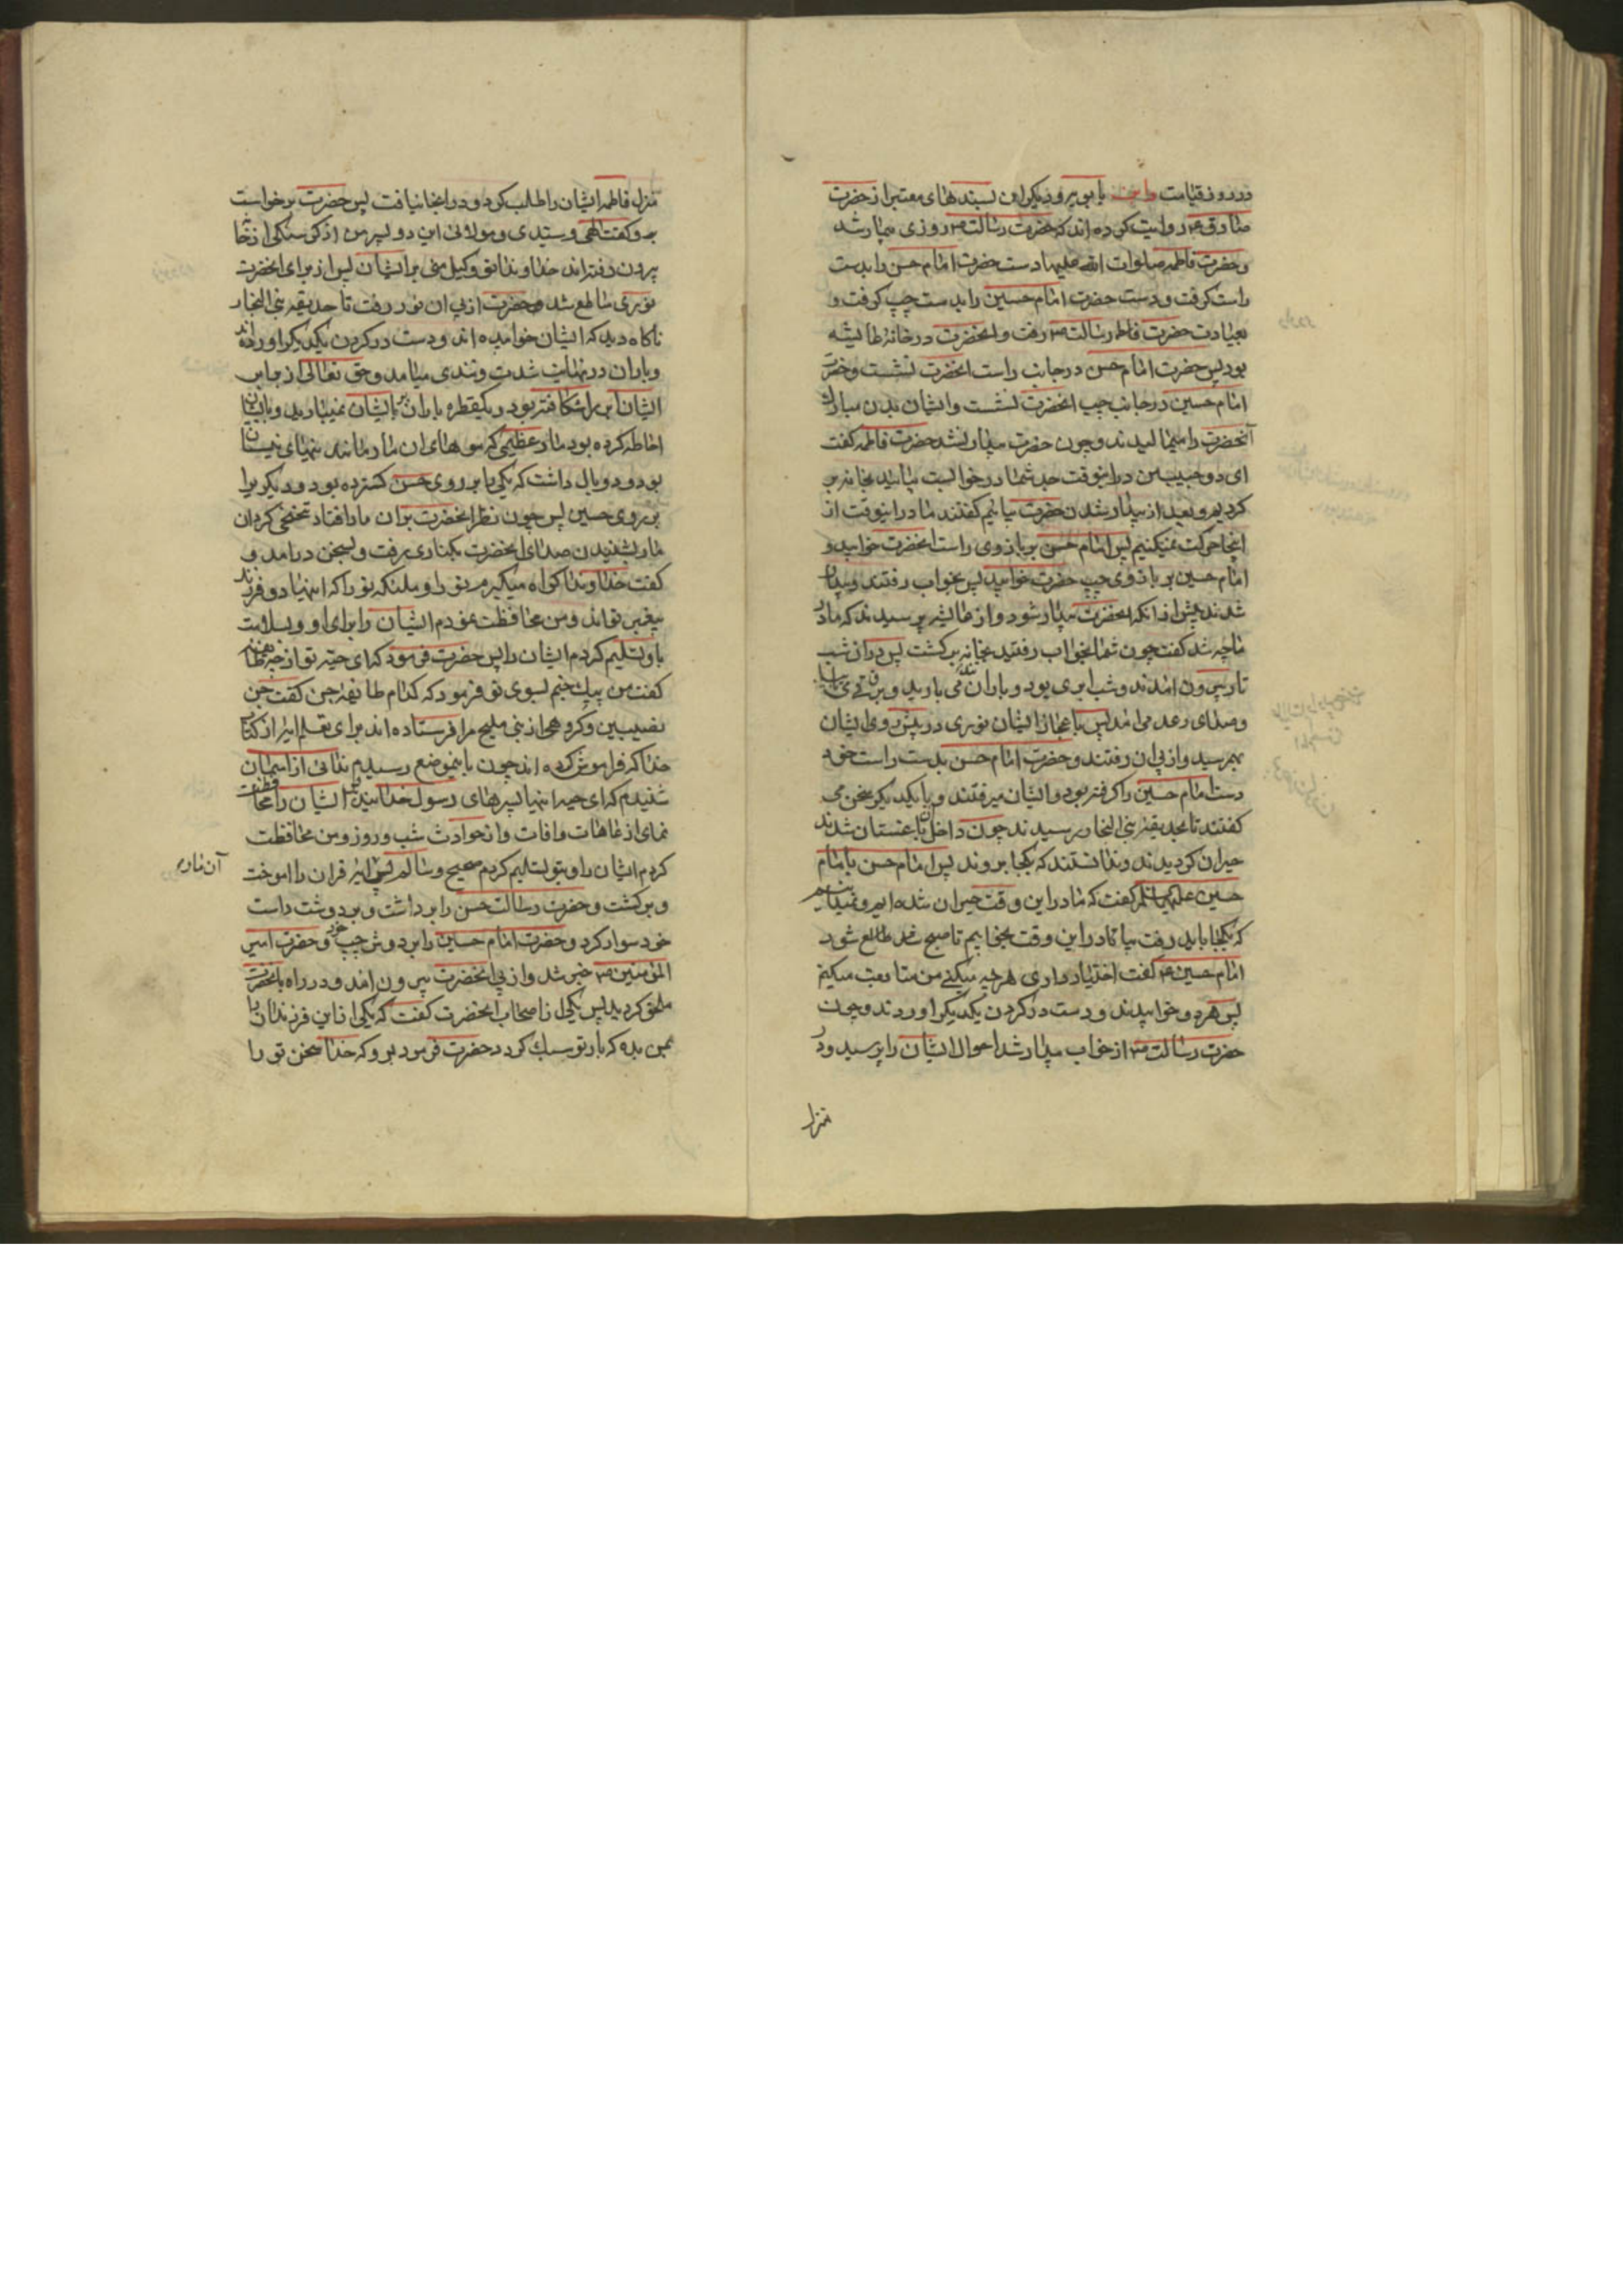 در روز قیامت و ابن بابویه و دیکران بسندهای معتبر از حضرت
صادق ع روایت کرده اند که حضرت رسالت ص روزی بیمار شد
و حضرت فاطمه صلوات الله علیها دست حضرت امام حسن را بدست
راست کرفت و دست حضرت امام حسین را بدست چپ کرفت و
بعیادت حضرت رسالت ص رفت و انحضرت در خانهٔ عایشه
بود پس حضرت امام حسن در جانب راست انحضرت نشست و حضرت
امام حسین در جانب چپ انحضرت نشست و ایشان بدن مبارک
آنحضرت را میمالیدند و چون حضرت بیدار نشد حضرت فاطمه کفت
ای دو حبیب من در اینوقت جد شما در خوابست بیائید بخانه بر
کردیم و بعد از بیدار شدن حضرت بیائیم کفتند ما در اینوقت از
اینجا حرکت نمیکنیم پس امام حسن بر بازوی راست انحضرت خوابید و
امام حسین بر بازوی چپ حضرت خوابید پس بخواب رفتند و بیدار
شدند پیش از انکه انحضرت بیدار شود و از عایشه پرسیدند که مادر
ما چه شد کفت چون شما بخواب رفتید بخانه برکشت پس در ان شب
تار بیرون امدند و شب ابری بود و باران تند می بارید و برق
و صدای رعد می امد پس باعجاز ایشان نوری در پیش روی ایشان
بهم رسید و از پی ان رفتند و حضرت امام حسن بدست راست خود
دست امام حسین را کرفته بود و ایشان میرفتند و با یکدیکر سخن می
کفتند تا بحدیقه بنی النجار رسیدند چون داخل ان باغستان شدند
حیران کردیدند و ندانستند که بکجا بروند پس امام حسن بامام
حسین علیهما السلم کفت که ما در این وقت حیران شده ایم و نمیدانیم
که بکجا باید رفت بیا تا در این وقت بخوابیم تا صبح طالع شود
امام حسین ع کفت اختیار داری هر چه میکنی من متابعت میکنم
پس هر دو خوابیدند و دست در کردن یکدیکر اوردند و چون
حضرت رسالت ص از خواب بیدار شد احوال ایشان را پرسید و در
منزل
منزل فاطمه ایشان را طلب کرد و در انجا نیافت پس حضرت برخواست
و کفت الهی و سیدی و مولائی این دو پسر من از کرسنکی از خانه
بیرون رفته اند خداوندا تو وکیل منی بر ایشان پس از برای انحضرت
نوری ساطع شد و حضرت از پی ان نور رفت تا حدیقه بنی النجار
ناکاه دید که ایشان خوابیده اند و دست در کردن یکدیکر اورده اند
و باران در نهایت شدت و تندی میامد و حق تعالی از
ایشان ابر را شکافته بود و یکقطره باران بر ایشان نمیبارید و بایشان
احاطه کرده بود مار عظیمی که موهای ان مار مانند نیهای نیستان
بود و دو بال داشت که یکی را بر روی حسن کسترده بود و دیکریرا
بر روی حسین پس چون نظر انحضرت بران مار افتاد تنحنحی کرد ان
مار بشنیدن صدای انحضرت بکناری رفت و بسخن درامد و
کفت خداوندا کواه میکیرم تو را و ملئکه تو را که اینها دو فرزند
پیغمبر تواند و من محافظت نمودم ایشان را برای او و بسلامت
باو تسلیم کردم ایشان را پس حضرت فرمود که ای حیه تو از
کفت من پیک جنم بسوی تو فرمود که کدام طایفه جن کفت جن
نصیبین و کروهی از بنی ملیح مرا فرستاده اند برای تعلم ایه از کتاب
خدا که فراموش کرده اند چون باینموضع رسیدم ندائی از اسمان
شنیدم که ای حیه اینها پسرهای رسول خدایند ایشان را محافظت
نمای از عاهات و افات و از حوادث شب و روز و من محافظت
کردم ایشان را و بتو تسلیم کردم صحیح و سالم پس ایه قران را اموخت
آن مار
و برکشت و حضرت رسالت حسن را برداشت و بر دوش راست
خود سوار کرد و حضرت امام حسین را بر دوش چپ خود و حضرت امیر
المؤمنین ع خبر شد و از پی انحضرت بیرون امد و در راه بانحضرت
ملحق کردید پس یکی از اصحاب انحضرت کفت که یکی از این فرزندان را
بمن بده که بار تو سبک کردد حضرت فرمود برو که خدا سخن تو را